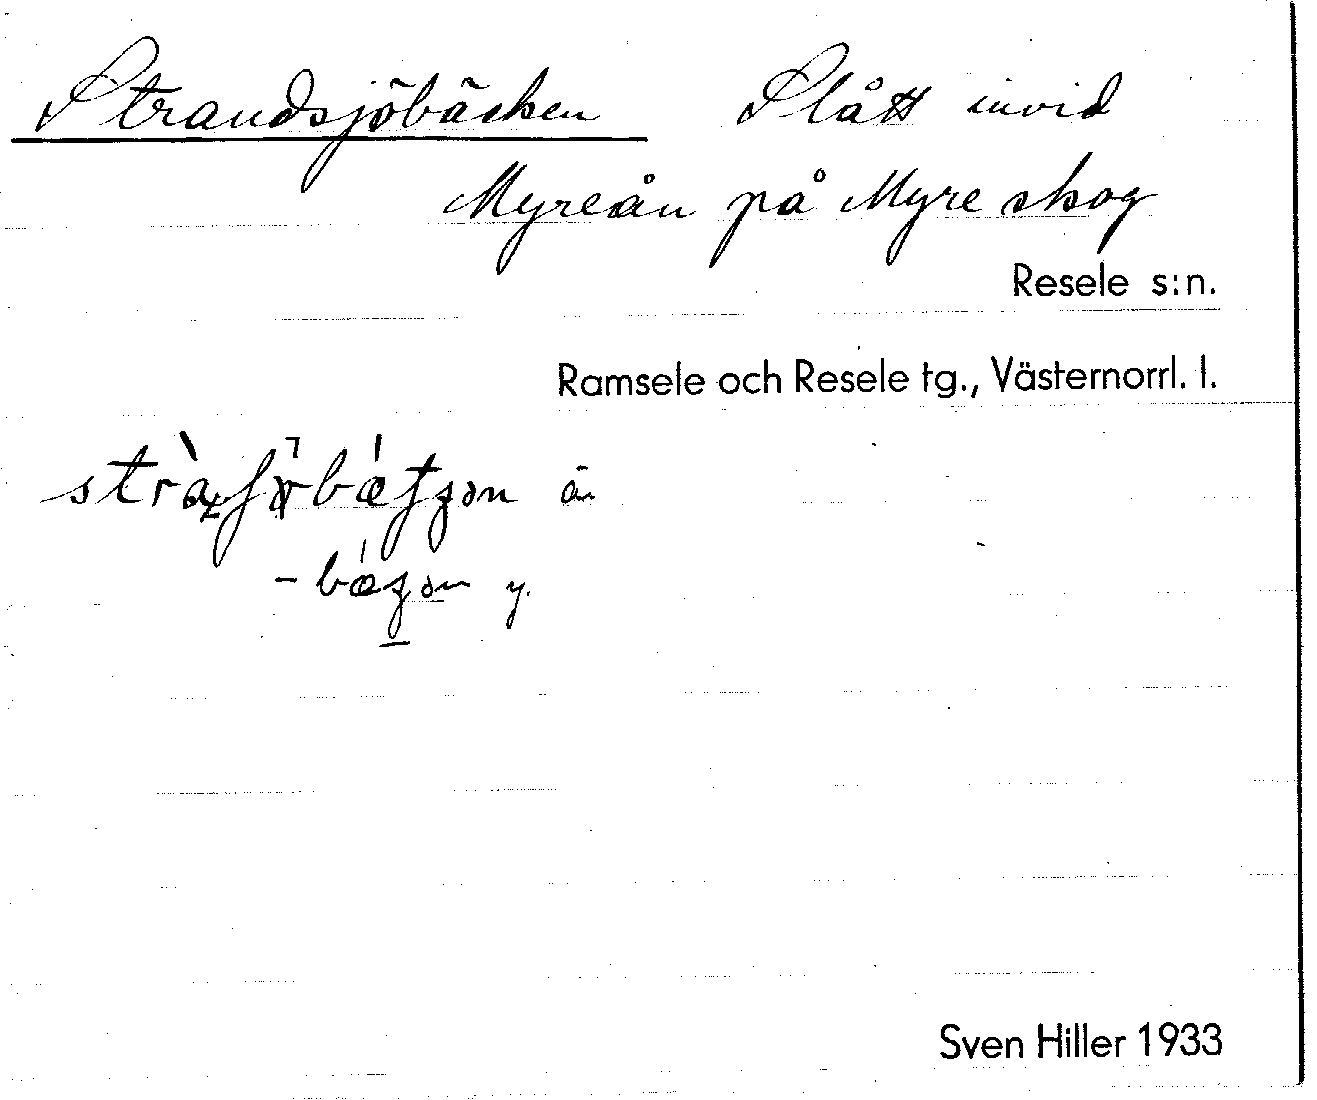 Strandsjöbäcken Slått invid
Myreån på Myre skog
Resele s:n.
Ramsele och Resele tg., Västernorrl. l.
ä.
y.
Sven Hiller 1933